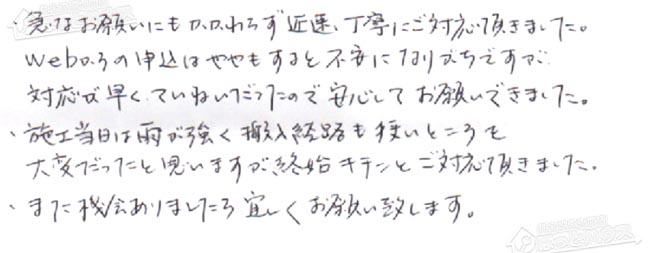 ・急なお願いにもかかわらず迅速、丁寧にご対応頂きました。
Webからの申込はややもすると不安になりがちですが
対応が早く、ていねいだったので安心してお願いできました。
・施工当日は雨が強く搬入経路も狭いところを
大変だったと思いますが終始キチンとご対応頂きました。
・また機会ありましたら宜しくお願い致します。